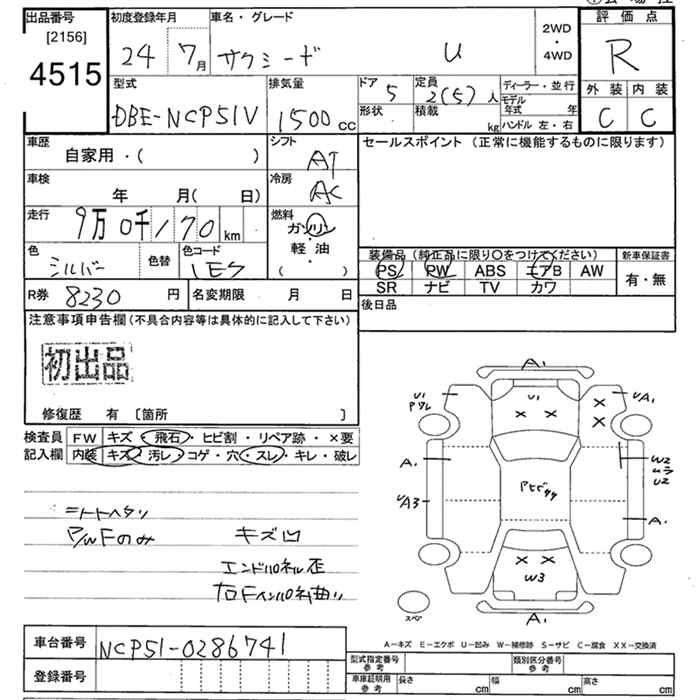 出品番号 初度登録年月 車名・グレード 2WD・4WD 評価点
[2156]
4515 24 7月 サクシード U R
型式 排気量 ドア 5 定員 2(5)人 ディーラー・並行 外装 内装
DBE-NCP51V 1500cc 形状 積載 kg モデル年式 年 C C
ハンドル 左・右
車歴 シフト セールスポイント (正常に機能するものに限ります)
自家用・( ) AT
車検 冷房
年 月( 日) AC
走行 燃料
9万0千170km ガソリン
軽・油
( )
色 色替 色コード 装備品 (純正品に限り○をつけてください) 新車保証書
シルバー 1E7 PS PW ABS エアB AW 有・無
R券 8230円 名変期限 月 日 SR ナビ TV カワ
注意事項申告欄(不具合内容等は具体的に記入して下さい) 後日品
初出品
修復歴 有 [箇所 ]
検査員 FW キズ・飛石・ヒビ割・リペア跡・×要
記入欄 内装 キズ・汚レ・コゲ・穴・スレ・キレ・破レ
A1
U1 U1 UA1
ワレ × × × ×
A1 W2
ムラ
U2
UA3 A1
× ×
W3
A1
スペア
シートヘタリ
P/WFのみ キズ凹
エンドパネル歪
右Fインパネ曲り
A－キズ E－エクボ U－凹み W－補修跡 S－サビ C－腐食 XX－交換済
車台番号 NCP51-0286741
登録番号
型式指定番号 参考 類別区分番号 参考
車庫証明用 参考 長さ cm 幅 cm 高さ cm